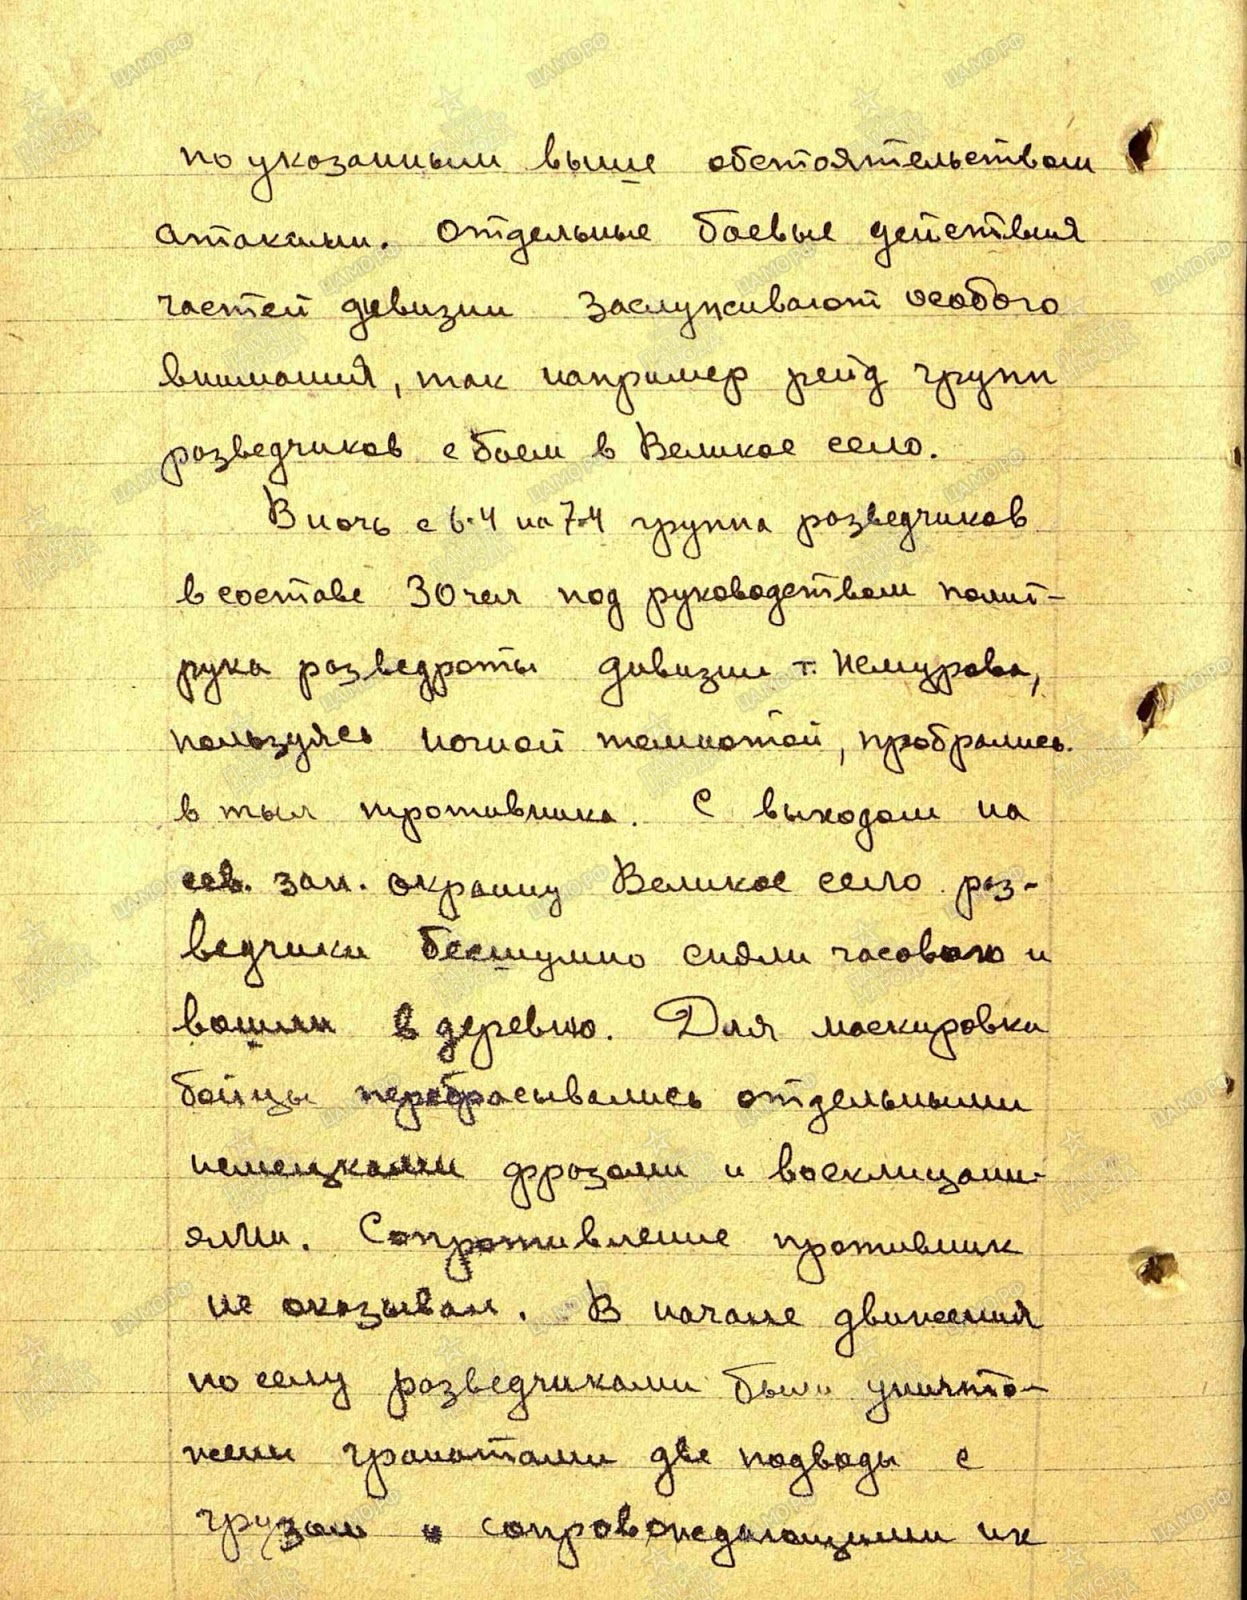 по указанным выше обстоятельствам
атаками. Отдельные боевые действия
частей дивизии заслуживают особого
внимания, так например рейд групп
разведчиков с боем в Великое село.
В ночь с 6.4 на 7.4 группа разведчиков
в составе 30 чел под руководством полит-
рука разведроты дивизии т. Немурова,
пользуясь ночной темнотой, пробрались
в тыл противника. С выходом на
сев. зап. окраину Великое село раз-
ведчики бесшумно сняли часового и
вошли в деревню. Для маскировки
бойцы перебрасывались отдельными
немецкими фразами и восклицани-
ями. Сопротивление противник
не оказывал. В начале движения
по селу разведчиками были уничто-
жены гранатами две подводы с
грузом и сопровождающими их